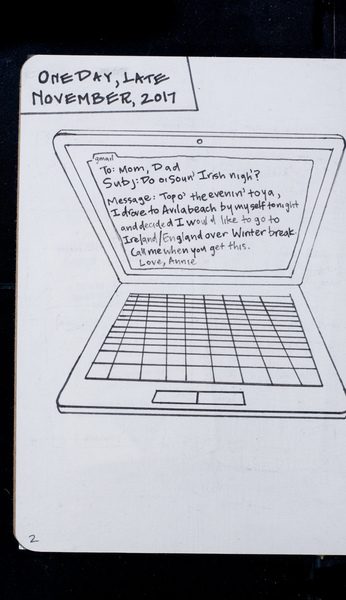 ONE DAY, LATE
NOVEMBER, 2017
gmail
To: Mom, Dad
Subj: Do oi soun' Irish nigh'?
Message: Top o' the evenin' to ya,
I drove to Avila beach by myself tonight
and decided I would like to go to
Ireland/England over Winter break.
Call me when you get this.
Love, Annie
2